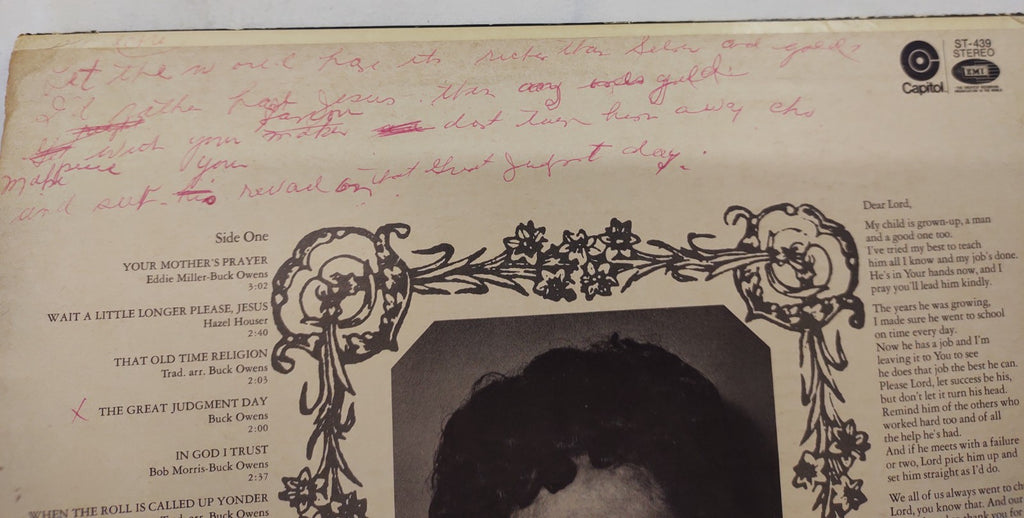 Let the world have its richer than Silver and gold
I'd rather have Jesus than any gold
with your maker dont turn him away
your
and set revad on that Great Judgst day.
ST-439
STEREO
Capitol
EMI
Side One
YOUR MOTHER'S PRAYER
Eddie Miller-Buck Owens
3:02
WAIT A LITTLE LONGER PLEASE, JESUS
Hazel Houser
2:40
THAT OLD TIME RELIGION
Trad. arr. Buck Owens
2:03
X THE GREAT JUDGMENT DAY
Buck Owens
2:00
IN GOD I TRUST
Bob Morris-Buck Owens
2:37
WHEN THE ROLL IS CALLED UP YONDER
Trad. arr. Buck Owens
Dear Lord,
My child is grown-up, a man
and a good one too.
I've tried my best to teach
him all I know and my job's done.
He's in Your hands now, and I
pray you'll lead him kindly.
The years he was growing,
I made sure he went to school
on time every day.
Now he has a job and I'm
leaving it to You to see
he does that job the best he can.
Please Lord, let success be his,
but don't let it turn his head.
Remind him of the others who
worked hard too and of all
the help he's had.
And if he meets with a failure
or two, Lord pick him up and
set him straight as I'd do.
We all of us always went to ch
Lord, you know that. And our
thank you for